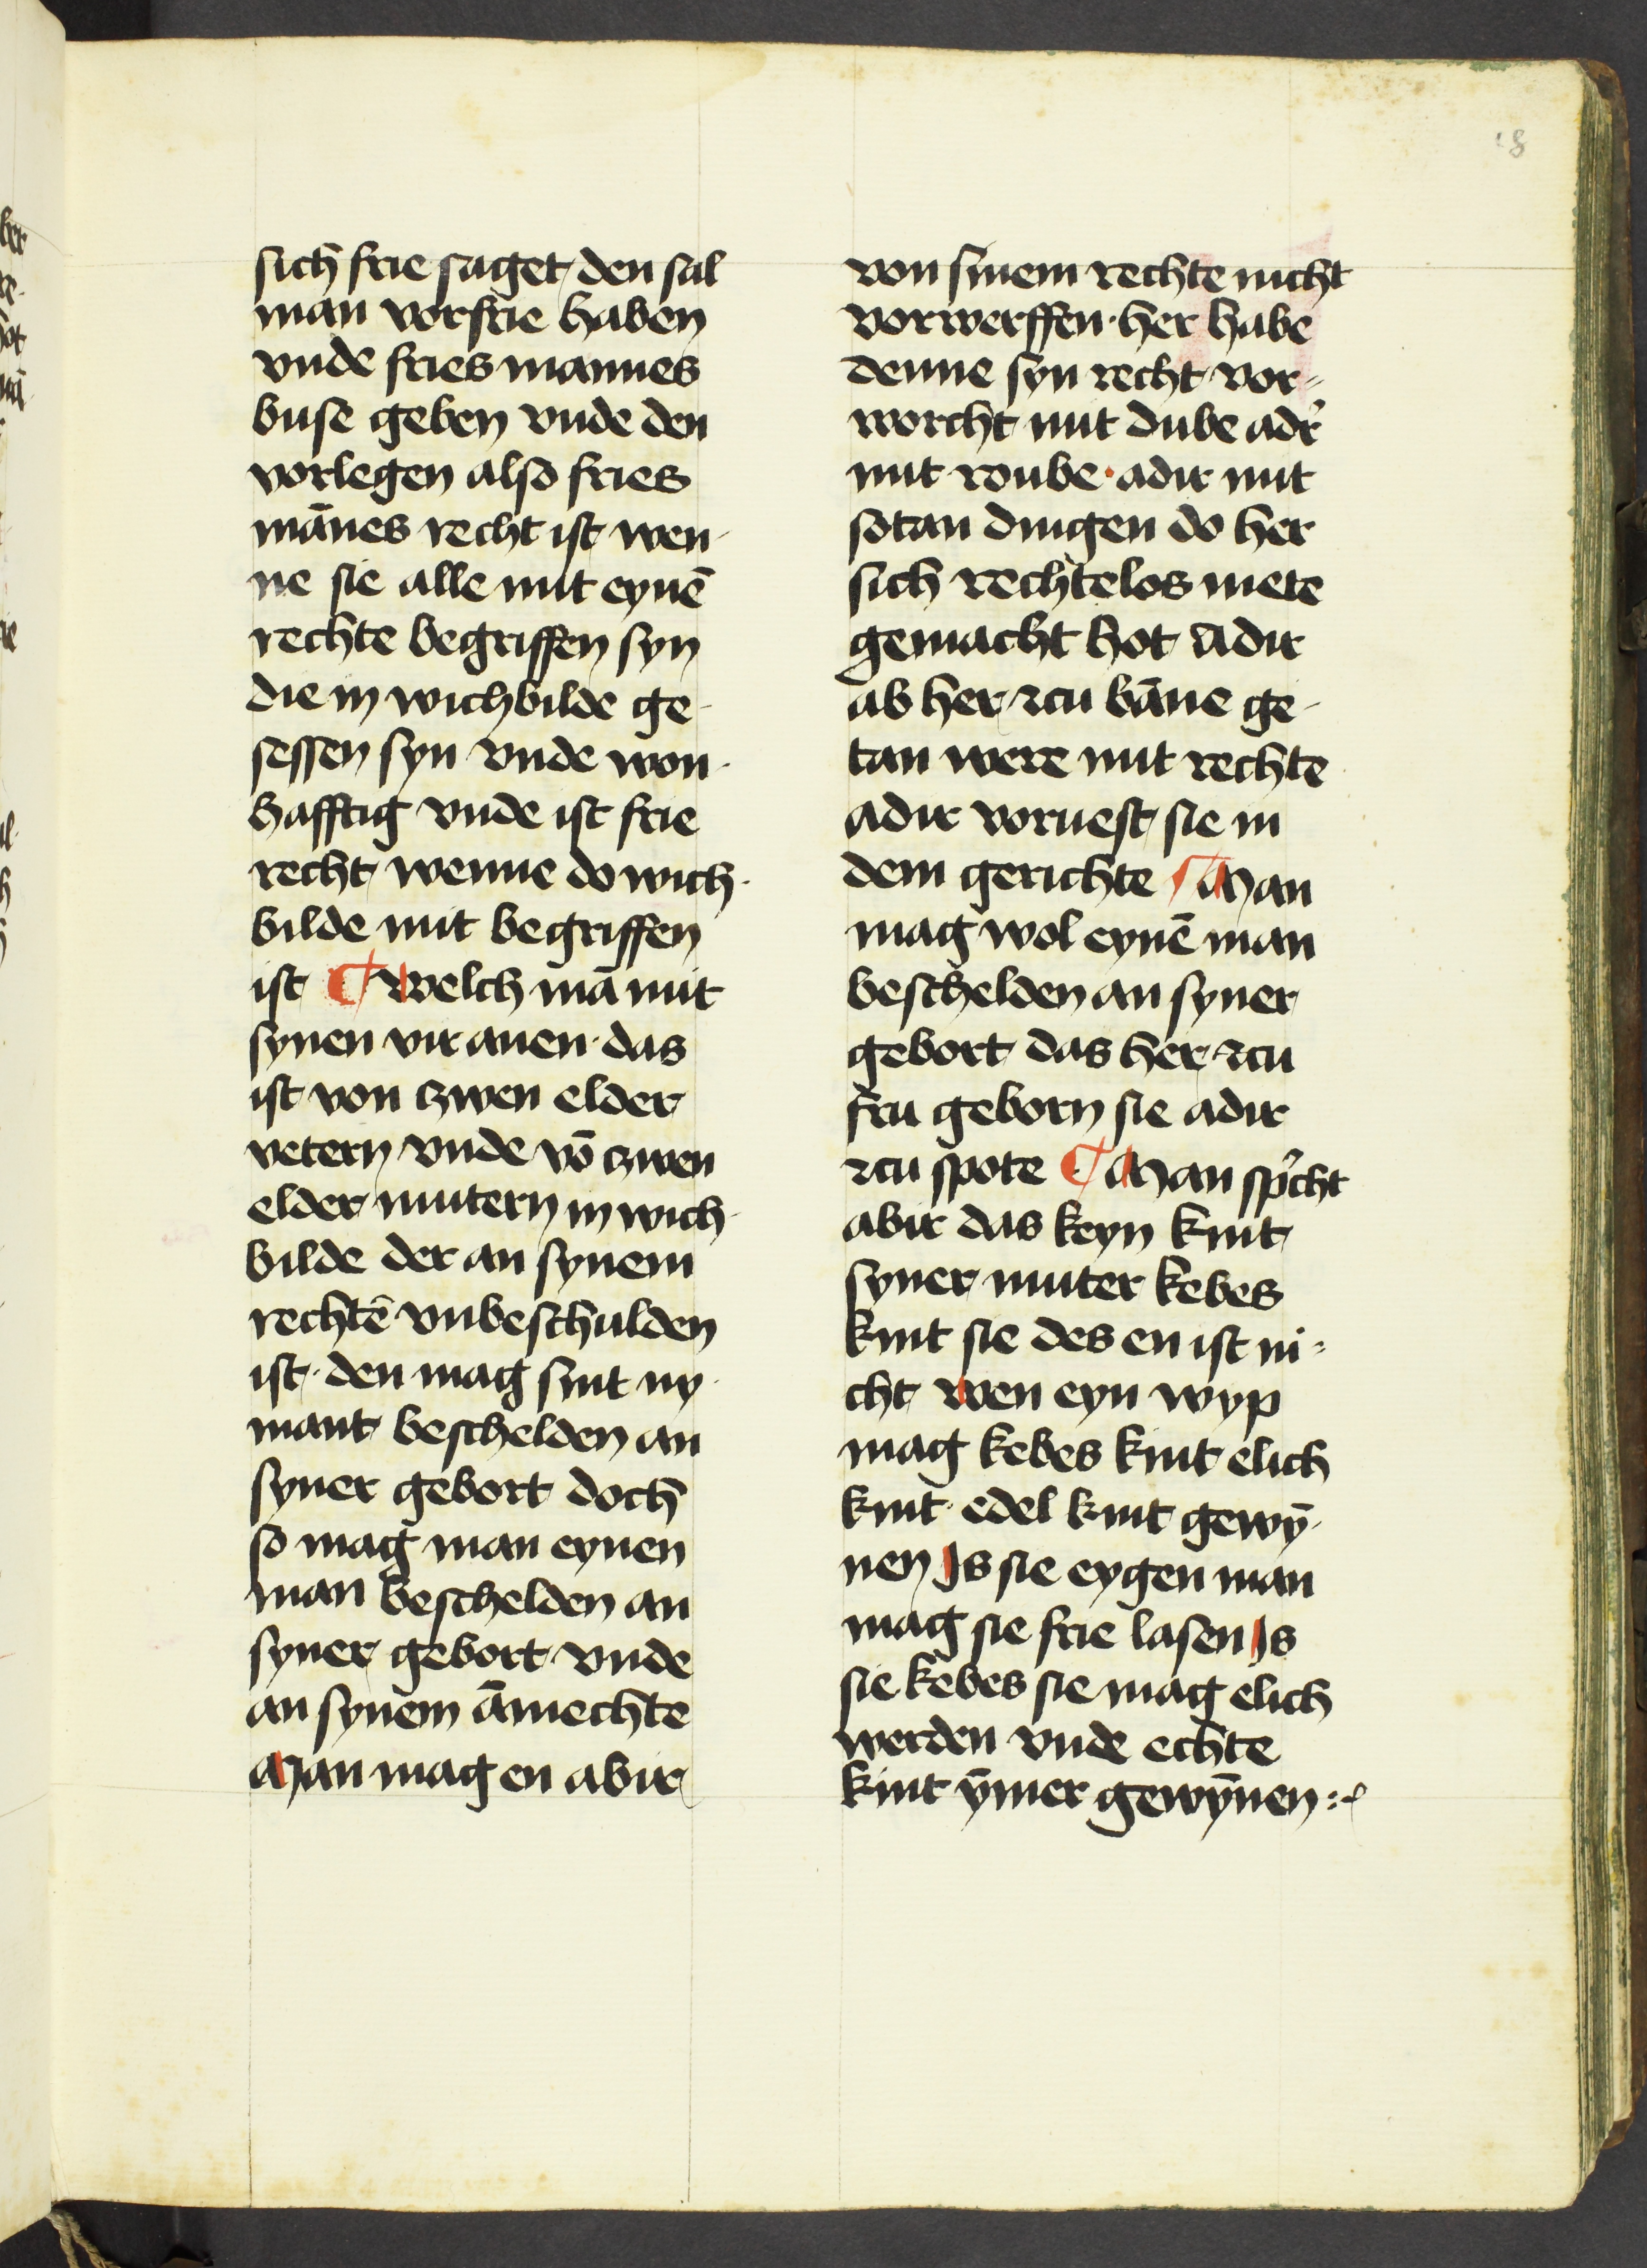 18
sich frie saget den sal
man vorfrie haben
vnde fries mannes
buse geben vnde den
vorlegen also fries
mānes recht ist wen-
ne sie alle mit eynē
rechte begriffen syn
die in wichbilde ge-
sessen syn vnde won-
hafftig vnde ist frie
recht wenne do wich-
bilde mit begriffen
ist ¶ Welch mā mit
synen vir anen · das
ist von czwen elder
vetern vnde vō czwen
elder mutern in wich-
bilde der an synem
rechtē vnbeschulden
ist · den mag sint ny-
mant beschelden an
syner gebort doch
so mag man eynen
man beschelden an
syner gebort vnde
an synem āmechte
Man mag en abir
von sinem rechte nicht
vorwerffen · her habe
denne syn recht vor-
worcht mit dube adr̕
mit roube · adir mit
sotan dingen do her
sich rechtelos mete
gemacht hot Adir
ab her zcu bāne ge-
tan were mit rechte
adir voruest sie in
dem gerichte ¶ Man
mag wol eynē man
beschelden an syner
gebort das her zcu
fru geborn sie adir
zcu spote ¶ Man sp̕cht
abir das keyn kint
syner muter kebes
kint sie des en ist ni-
cht Wen eyn wyp
mag kebes kint elich
kint · edel kint gewȳ-
nen Is sie eygen man
mag sie frie lasen Is
sie kebes sie mag elich
werden vnde echte
kint ȳmer gewȳnen :·